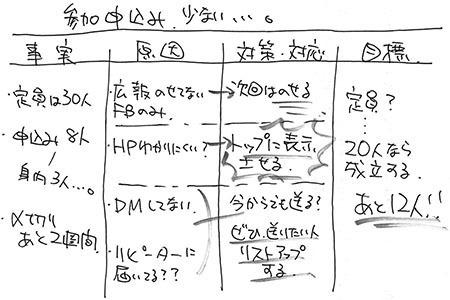 参加申込み、少ない…。
事実
原因
対策・対応
目標
・定員は30人
・申込み8人
身内3人…。
・〆切り
あと2週間
・広報のせてない
FBのみ.
・HPわかりにくい?
・DMしてない.
・リピーターに
届いてる??
→次回はのせる
→トップに表示
させる.
今からでも送る?
ぜひ、送りたい人
リストアップ
する.
定員?
20人なら
成立する.
あと12人!!